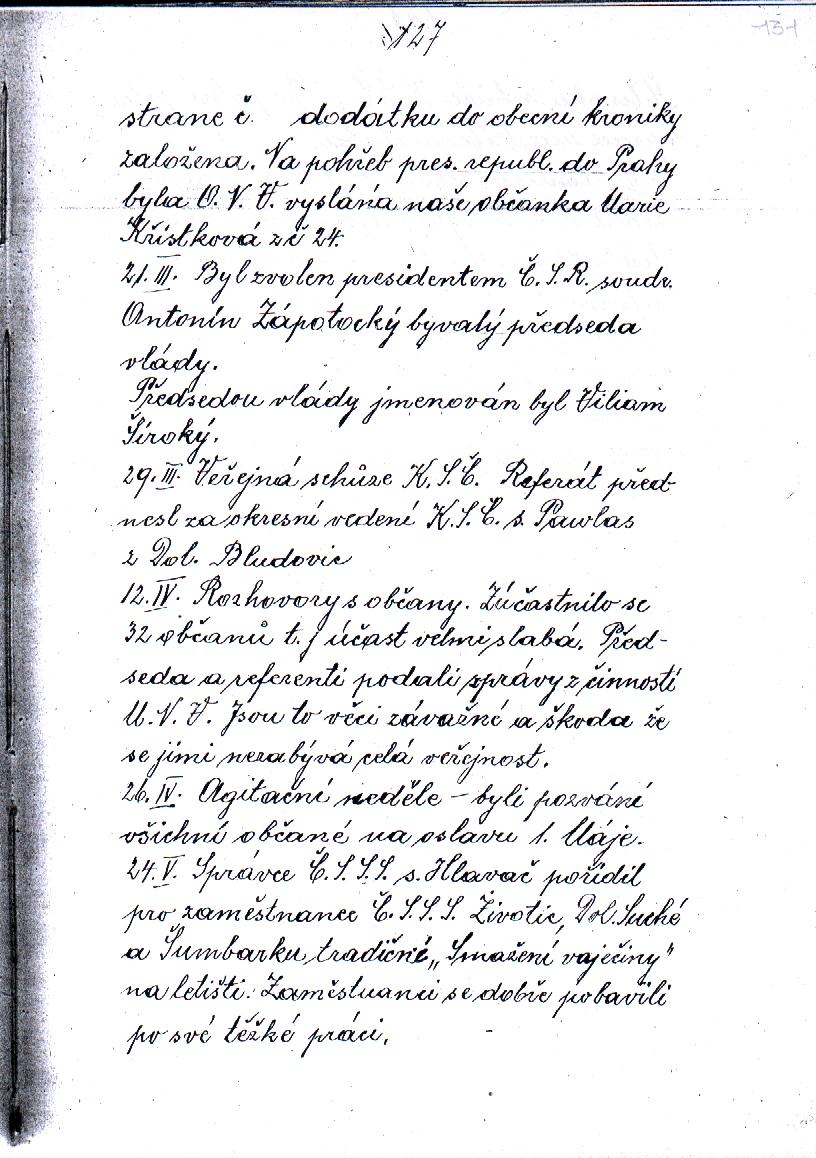 127
131
strane č. dodátku do obecní kroniky
založena. Na pohřeb pres. republ. do Prahy
byla O. N. V. vyslána naše občanka Marie
Křístková z č 24.
21. III. Byl zvolen presidentem Č. S. R. soudr.
Antonín Zápotocký bývalý předseda
vlády.
Předsedou vlády jmenován byl Viliam
Široký.
29. III. Veřejná schůze K. S. Č. Referát před-
nesl za okresní vedení K. S. Č. s. Pawlas
z Dol. Bludovic
12. IV. Rozhovory s občany. Zúčastnilo se
32 občanů t. j účast velmi slabá. Před-
seda a referenti podali zprávy z činností
M. N. V. Jsou to věci závažné a škoda že
se jimi nezabývá celá veřejnost.
26. IV. Agitační neděle – byli pozváni
všichni občané na oslavu 1. Máje.
24. V. Správce Č. S. S. S. s. Hlavač pořídil
pro zaměstnance Č. S. S. S. Životic, Dol. Suché
a Šumbarku tradičné „Smažení vaječiny"
na letišti. Zaměstnanci se dobře pobavili
po své těžké práci.